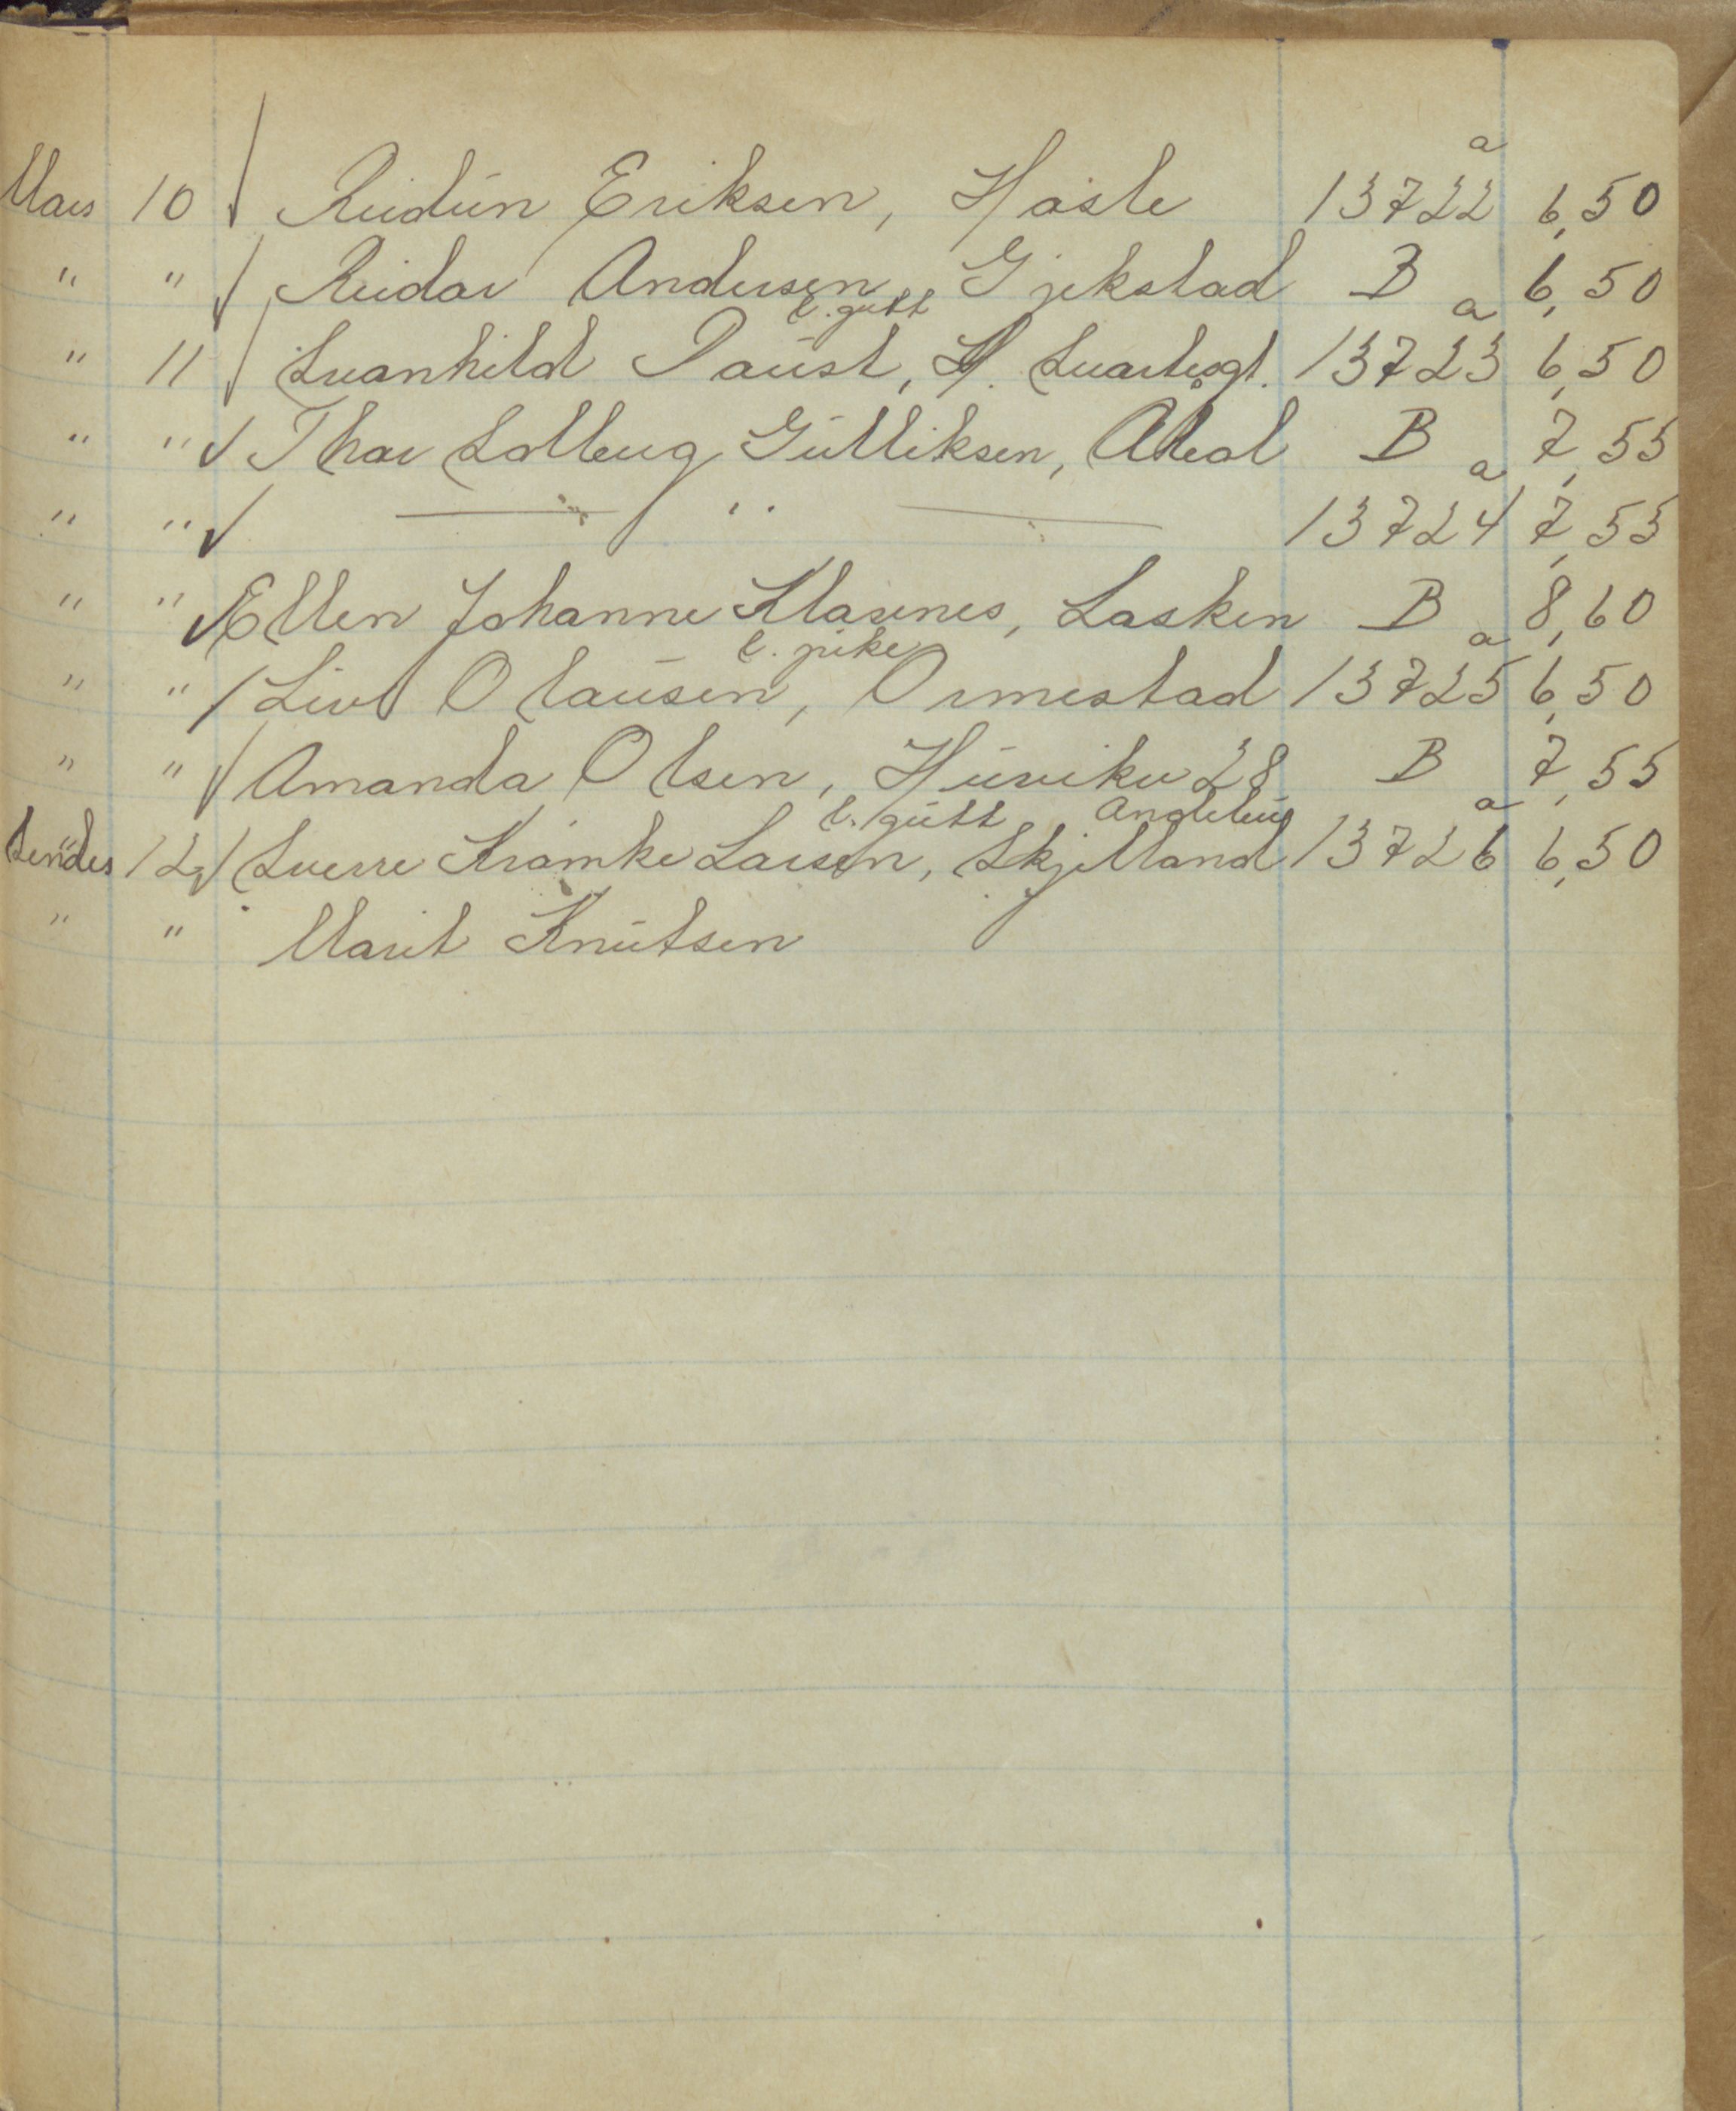 a
Mars 10 √ Reidun Eriksen, Hasle 13722 6,50
" " √ Reidar Andersen, Gjekstad B 6,50
l. gutt a
" 11 √ Svanhild Paust, St. Svarteøgt. 13723 6,50
" " √ Thor Solberg Gulliksen, Aheol B 7,55
a
" " √ — " — 13724 7,55
" " √ Ellen Johanne Klavenes, Lasken B 8,60
l. pike a
" " √ Liv Olausen, Ormestad 13725 6,50
" " √ Amanda Olsen, Huvikv 28 B 7,55
l. gutt Andebu a
Sendes 12 √ Sverre Kramke Larsen, Skjelland 13726 6,50
" " Marit Knutsen